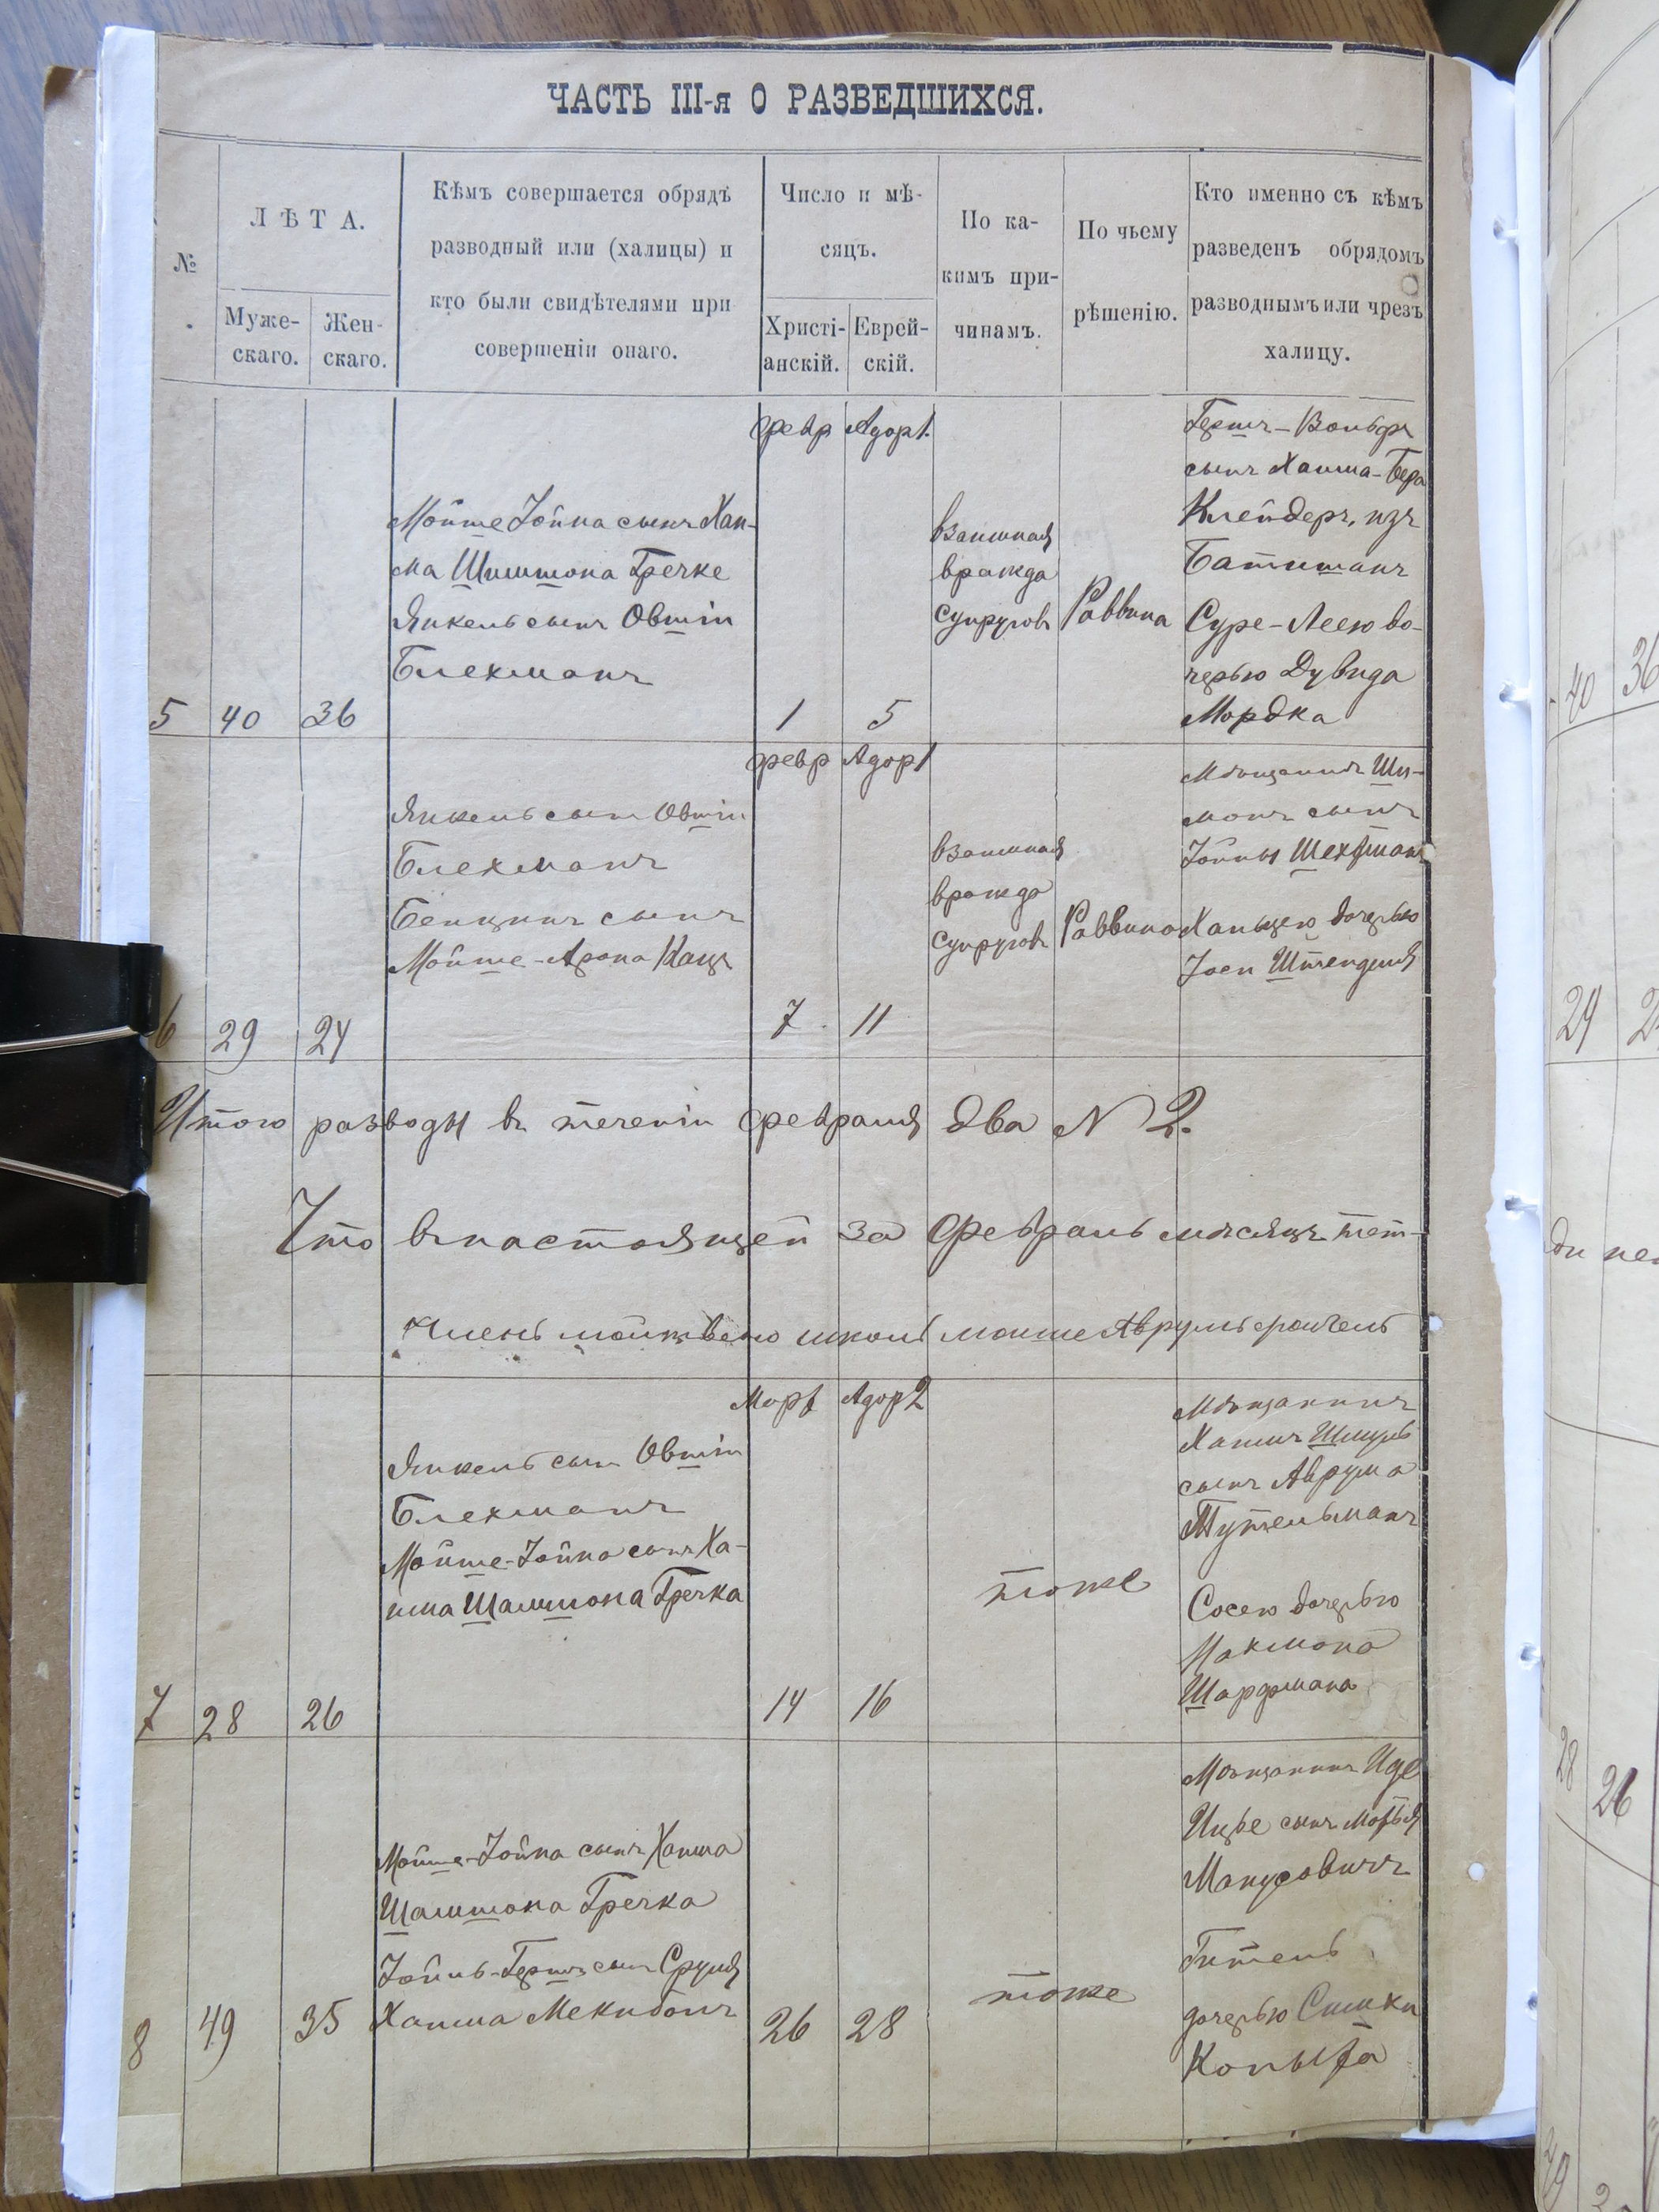 ЧАСТЬ III-я О РАЗВЕДШИХСЯ.
№
ЛѢТА.
Муже-
скаго.
Жен-
скаго.
Кѣмъ совершается обрядъ
разводный или (халицы) и
кто были свидѣтелями при
совершеніи онаго.
Число и мѣ-
сяцъ.
Христі-
анскій.
Еврей-
скій.
По ка-
кимъ при-
чинамъ.
По чьему
рѣшенію.
Кто именно съ кѣмъ
разведенъ обрядомъ
разводнымъ или чрезъ
халицу.
5
40
36
Мойше Іойна сынъ Хаи-
ма Шимшона Гречке
Янкель сынъ Овшіи
Блехманъ
февр
1
Адор 1.
5
взаимная
вражда
супругов
Раввина
Герш-Вольф
сынъ Хаима-Бера
Клейдеръ, изъ
Батушанъ
Суре-Леею до-
черью Дувида
Мордка
6
29
24
Янкель сын Овшіи
Блехманъ
Бенцинъ сынъ
Мойше-Арона Кацъ
февр
7
Адор 1
11
взаимная
вражда
супругов
Раввина
Мѣщанинъ Ши-
монъ сынъ
Іойны Шехтман
Ханцею дочерью
Іоси Штендля
Итого разводы въ теченіи февраля два N 2.
Что в настоящей за февраль мѣсяцъ
школы Мойше Аврумъ
7
28
26
Янкель сын Овшіи
Блехманъ
Мойше-Іойна сынъ Ха-
има Шамшона Гречка
Март
14
Адор 2
16
тоже
Мѣщанинъ
Хаимъ Шмуль
сынъ Аврума
Тутельманъ
Сосею дочерью
Нахмона
Шарфмана
8
49
35
Мойше-Іойна сынъ Хаима
Шамшона Гречка
Іойнь-Гершъ сын Сруля
Хаима Мекибонъ
26
28
тоже
Мѣщанинъ Иде
Ицре сынъ Мотья
Манусовичъ
Гитель
дочерью Симхи
Копыта
40
36
24
28
26